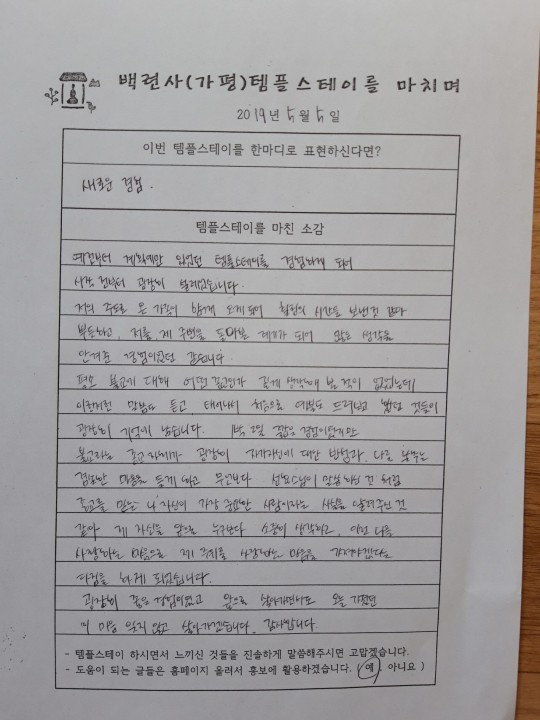 백련사(가평)템플스테이를 마치며
2019년 5월 5일
이번 템플스테이를 한마디로 표현하신다면?
새로운 경험.
템플스테이를 마친 소감
예전부터 계획에만 있었던 템플스테이를 경험하게 되어
시작 전부터 굉장히 설레었습니다.
저의 주도로 온 가족이 함께 오게되어 힐링의 시간을 보낸것 같아
뿌듯하고, 저를, 제 주변을 돌아본 계기가 되어 많은 생각을
안겨준 경험이었던 같습니다.
평소 불교에 대해 어떤 종교인가 깊게 생각해 본 적이 없었는데
이런저런 말씀도 듣고, 태어나서 처음으로 예불도 드려보고 했던 것들이
굉장히 기억에 남습니다. 1박 2일 짧은 경험이었지만
불교라는 종교 자체가 굉장히 자기자신에 대한 방법과, 나를 낮추는
겸손한 마음을 듣게 하고 무엇보다 선묘스님이 말씀하신 것 처럼
종교를 믿는 나 자신이 가장 중요한 사람이라는 사실을 알려주신 것
같아 제 자신을 앞으로 누구보다 소중히 생각하고, 이런 나를
사랑하는 마음으로 제 주위를 사랑하는 마음을 가져야겠다는
다짐을 하게 되었습니다.
굉장히 좋은 경험이었고 앞으로 살아가면서도 오늘 가졌던
이 마음 잊지 않고 살아가겠습니다. 감사합니다.
- 템플스테이 하시면서 느끼신 것들을 진솔하게 말씀해주시면 고맙겠습니다.
- 도움이 되는 글들은 홈페이지 올려서 홍보에 활용하겠습니다. ( 예, 아니요 )